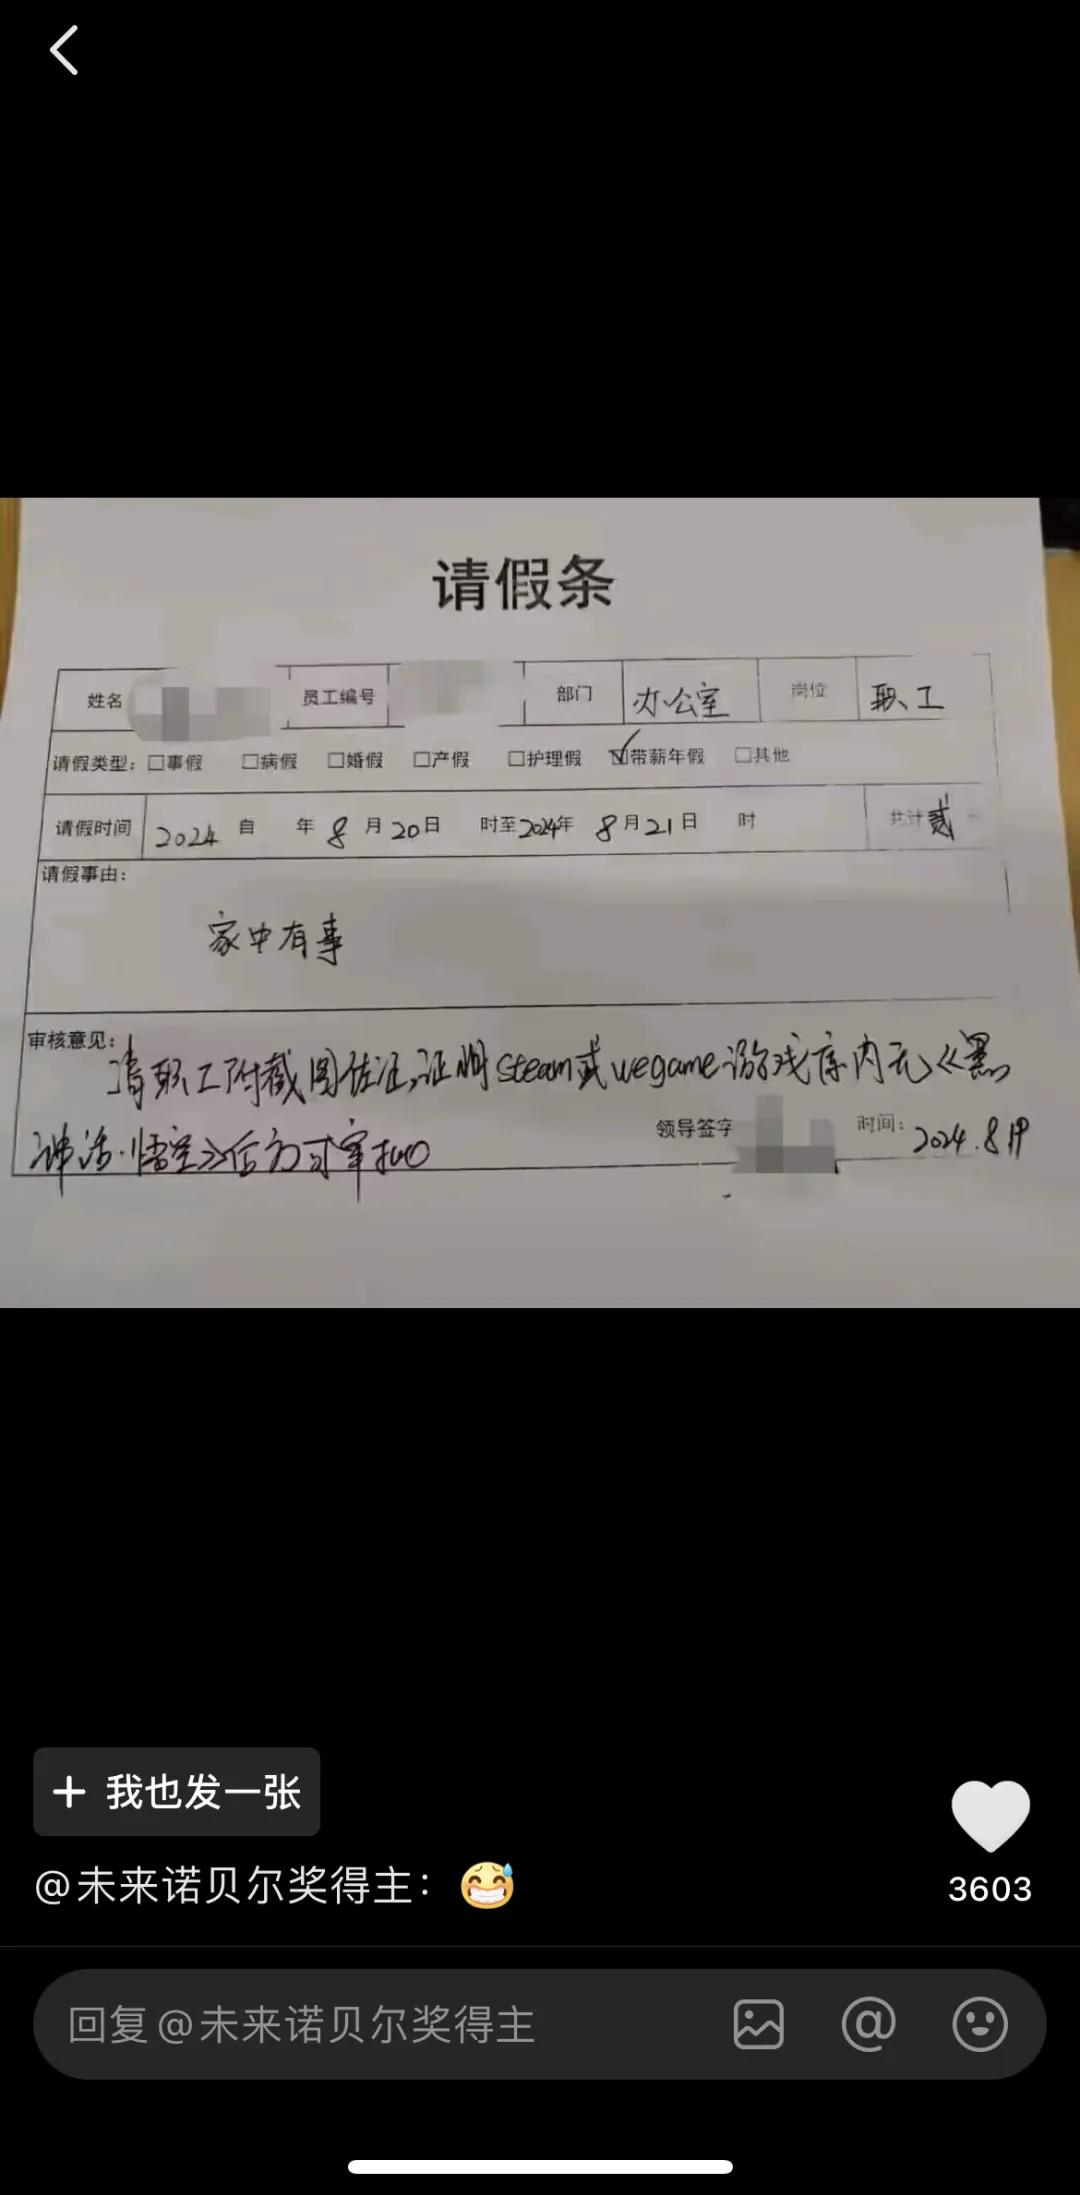 请假条
姓名 员工编号 部门 办公室 岗位 职工
请假类型: □事假 □病假 □婚假 □产假 □护理假 ☑带薪年假 □其他
请假时间 2024 自 年 8 月 20 日 时至 2024年 8 月 21 日 时 共计 贰
请假事由:
家中有事
审核意见:
请职工附截图佐证,证明steam或wegame游戏库内无《黑
神话·悟空》后方可审批
领导签字 时间: 2024.8.19
+ 我也发一张
@未来诺贝尔奖得主:
3603
回复 @未来诺贝尔奖得主